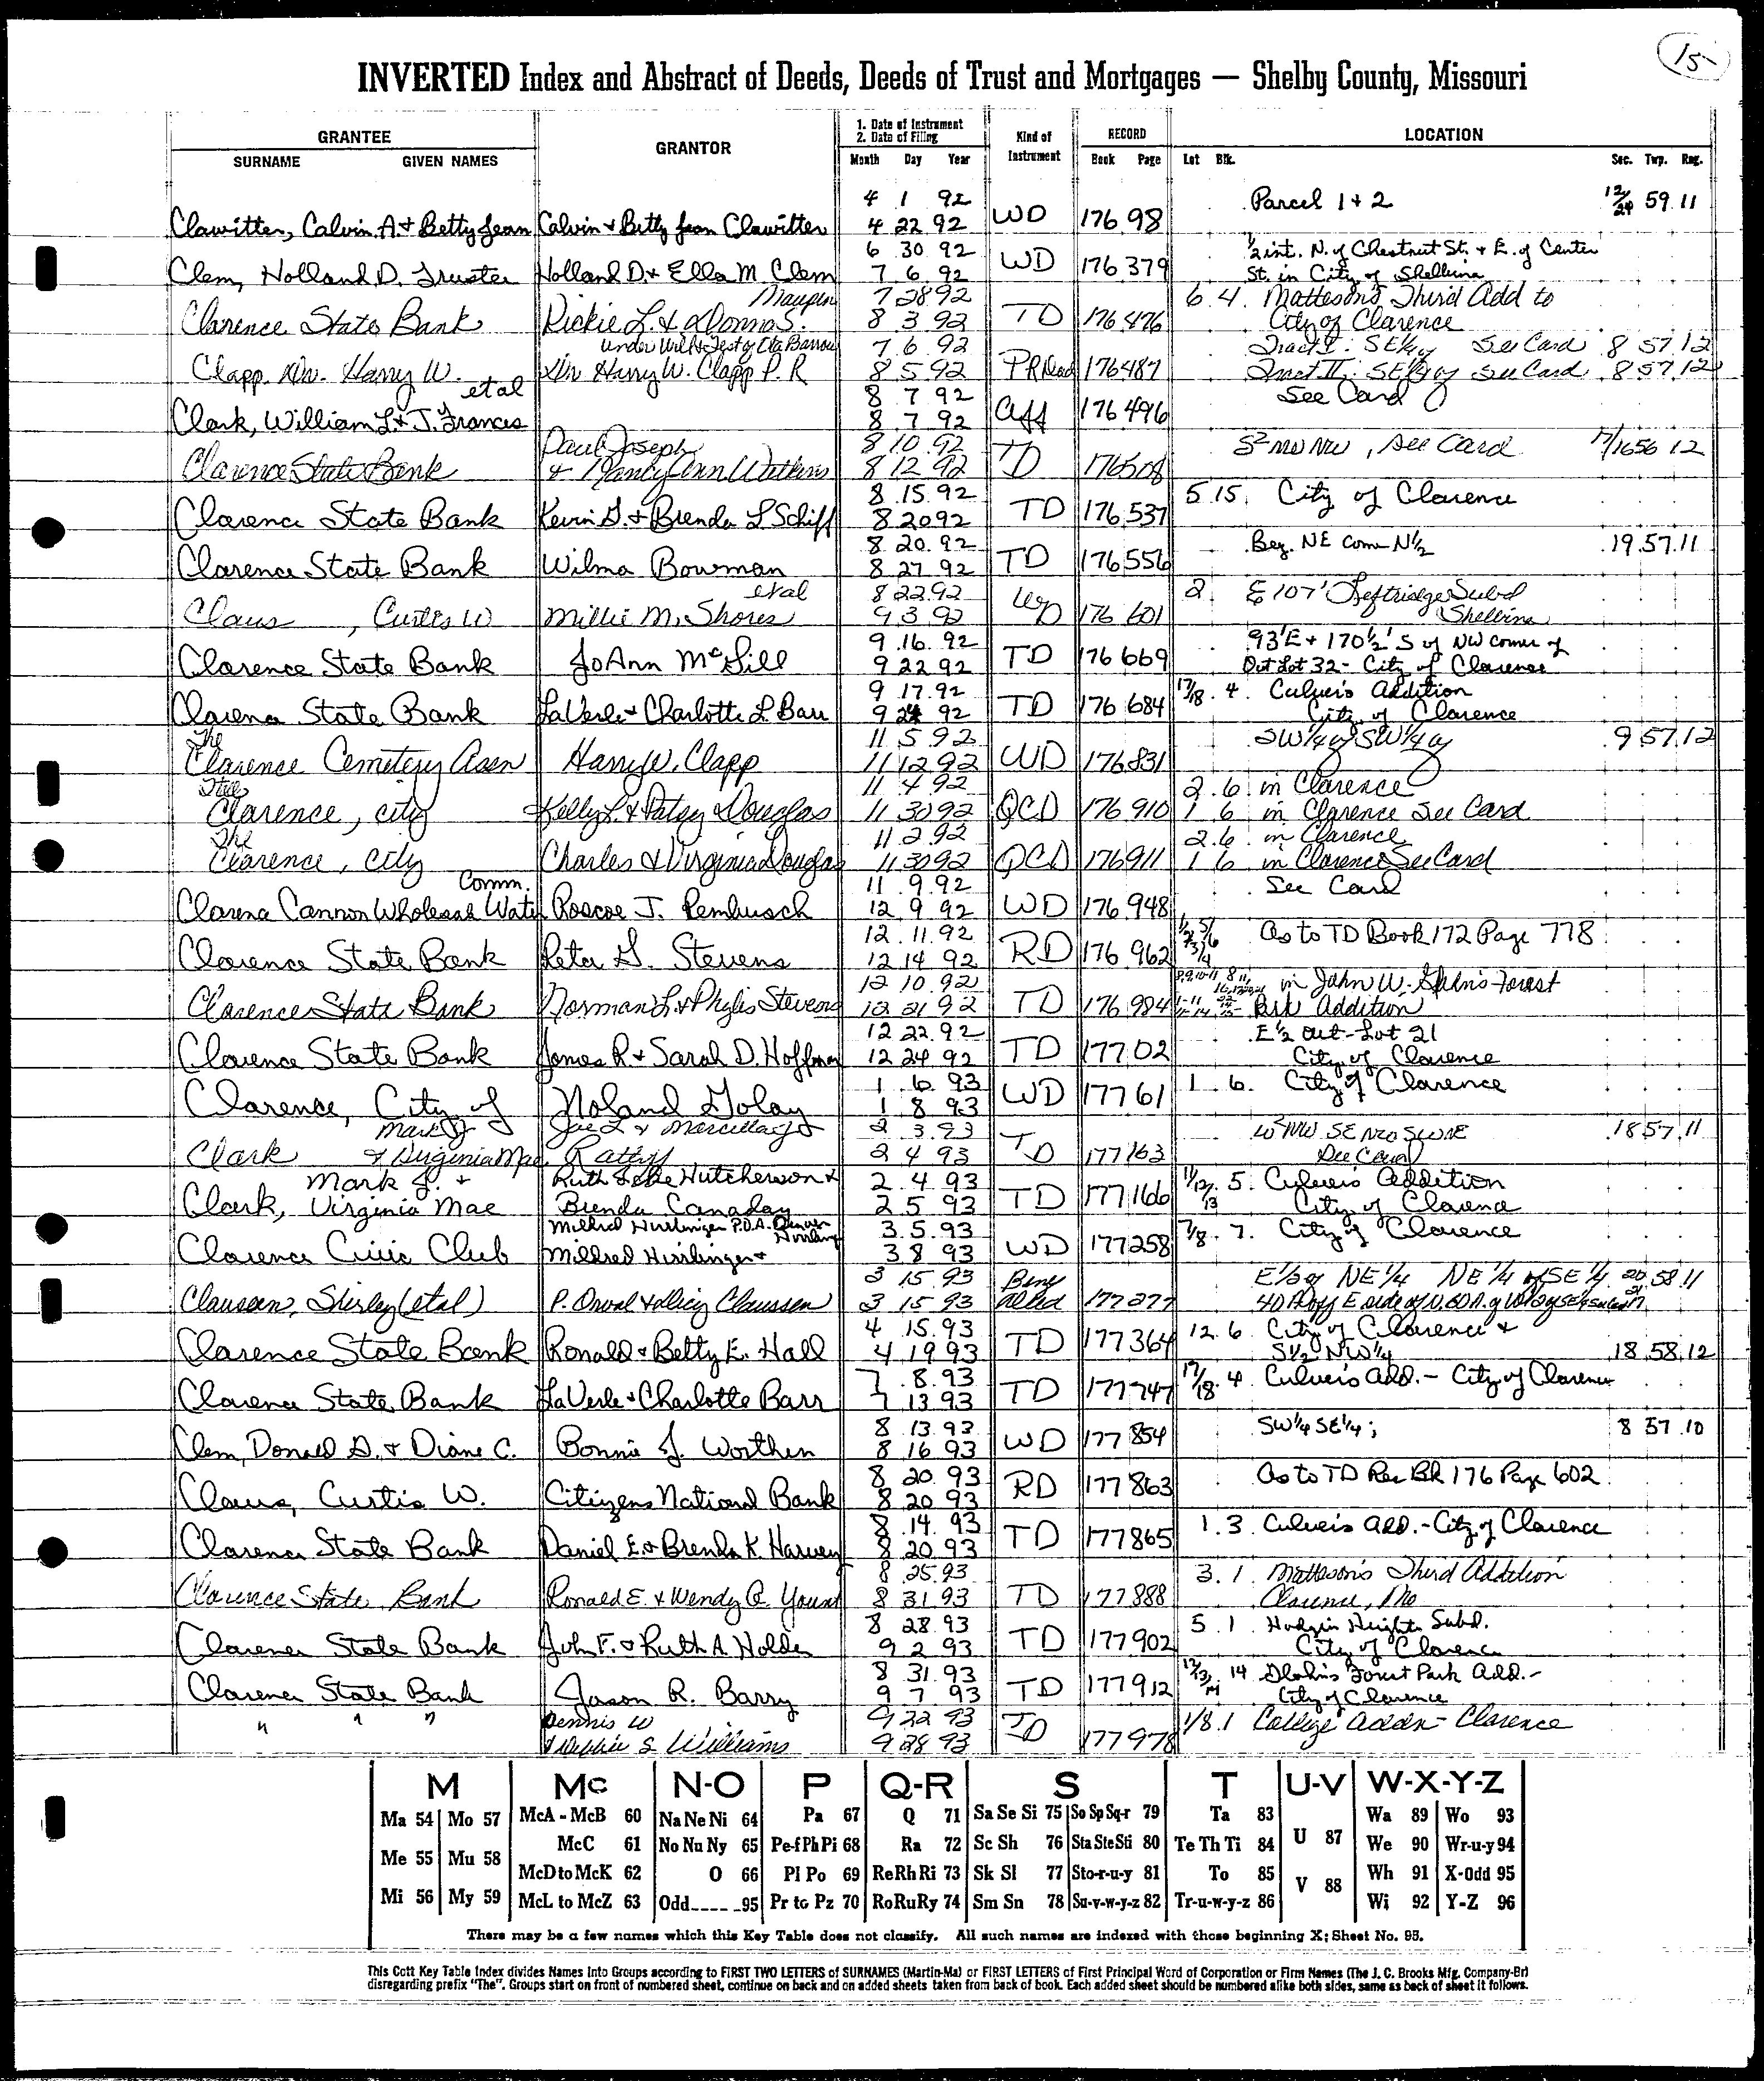 15
INVERTED Index and Abstract of Deeds, Deeds of Trust and Mortgages — Shelby County, Missouri
GRANTEE GRANTOR 1. Date of Instrument 2. Date of Filing Kind of Instrument RECORD LOCATION
SURNAME GIVEN NAMES Month Day Year Book Page Lot Blk. Sec. Twp. Rng.
4 1 92 Parcel 1 + 2 12/24 59 11
Clawitter, Calvin A. + Betty Jean Calvin + Betty Jean Clawitter 4 22 92 WD 176 98
6 30 92 1/2 int. N. of Chestnut St. + E. of Center
Clem, Holland D. Trustee Holland D. + Ella M. Clem 7 6 92 WD 176 379 St. in City of Shelbina
Maupin 7 28 92 6 4 Matteson's Third Add to
Clarence State Bank Rickie L. + Donna S. 8 3 92 TD 176 476 City of Clarence
under Will + Test of Eta Barrow 7 6 92 Tract I: SE 1/4 See Card 8 57 12
Clapp, Dr. Harry W. Dr. Harry W. Clapp P.R 8 5 92 PR Deed 176 487 Tract II: SE 1/4 of See Card 8 57 12
et al 8 7 92 See Card
Clark, William L. + J. Frances 8 7 92 Aff 176 496
Paul Joseph 8 10 92 S2 NW NW, See Card 17/16 56 12
Clarence State Bank + Nancy Ann Watkins 8 12 92 TD 176 508
8 15 92 5 15 City of Clarence
Clarence State Bank Kevin G. + Brenda L Schiff 8 20 92 TD 176 537
8 20 92 Beg. NE corn N 1/2 19 57 11
Clarence State Bank Wilma Bowman 8 27 92 TD 176 556
et al 8 22 92 2 E 107' Leftridge Subd
Claus, Curtis W Millie M. Shores 9 3 92 WD 176 601 Shelbina
9 16 92 93'E + 170 1/2' S of NW corner of
Clarence State Bank JoAnn McGill 9 22 92 TD 176 669 Out Lot 32 - City of Clarence
9 17 92 17/18 4 Culver's Addition
Clarence State Bank LaVerle + Charlotte L. Barr 9 24 92 TD 176 684 City of Clarence
The 11 5 92 SW 1/4 of SW 1/4 of 9 57 12
Clarence Cemetery Assn Harry W. Clapp 11 12 92 WD 176 831
The 11 4 92 2 6 in Clarence
Clarence, city Kelly L. + Patsy Douglas 11 30 92 QCD 176 910 1 6 in Clarence See Card
The 11 2 92 2 6 in Clarence
Clarence, city Charles + Virginia Douglas 11 30 92 QCD 176 911 1 6 in Clarence See Card
Comm. 11 9 92 See Card
Clarence Cannon Wholesale Water Roscoe J. Rembusch 12 9 92 WD 176 948
12 11 92 As to TD Book 172 Page 778
Clarence State Bank Reta G. Stevens 12 14 92 RD 176 962
12 10 92 in John W. Forest
Clarence State Bank Norman L. + Phylis Stevens 12 21 92 TD 176 984 Park Addition
12 22 92 E 1/2 Out-Lot 21
Clarence State Bank James R. + Sarah D. Hoffman 12 24 92 TD 177 02 City of Clarence
1 6 93 1 6 City of Clarence
Clarence, City of Noland Golay 1 8 93 WD 177 61
Mark J. Joe L + Marcella 2 3 93 SE SWNE 18 57 11
Clark + Virginia Mae Rathjy 2 4 93 TD 177 163 See Card
Mark J. + Ruth Hutcherson + 2 4 93 11/12/13 5 Culver's Addition
Clark, Virginia Mae Brenda Canaday 2 5 93 TD 177 166 City of Clarence
Mildred Hirrlinger P.O.A. 3 5 93 7/8 7 City of Clarence
Clarence Civic Club Mildred Hirrlinger + 3 8 93 WD 177 258
3 15 93 Beny E 1/2 of NE 1/4 NE 1/4 of SE 1/4 20 58 11
Claussen, Shirley (et al) P. Orval + Claussen 3 15 93 Deed 177 277 40 A off E side of
4 15 93 12 6 City of Clarence +
Clarence State Bank Ronald + Betty E. Hall 4 19 93 TD 177 364 S 1/2 NW 1/4 18 58 12
7 8 93 17/18 4 Culver's Add. - City of Clarence
Clarence State Bank LaVerle + Charlotte Barr 7 13 93 TD 177 747
8 13 93 SW 1/4 SE 1/4; 8 57 10
Clem, Donald D. + Diane C. Bonnie J. Worthen 8 16 93 WD 177 854
8 20 93 As to TD Rec Bk 176 Page 602
Claus, Curtis W. Citizens National Bank 8 20 93 RD 177 863
8 14 93 1 3 Culver's Add. - City of Clarence
Clarence State Bank Daniel E. + Brenda K. Harvey 8 20 93 TD 177 865
8 25 93 3 1 Matteson's Third Addition
Clarence State Bank Ronald E. + Wendy A. Yount 8 31 93 TD 177 888 Clarence, Mo
8 28 93 5 1 Hodgin Heights Subd.
Clarence State Bank John F. + Ruth A. Holder 9 2 93 TD 177 902 City of Clarence
8 31 93 12/13/14 14 Forest Park Add. -
Clarence State Bank Jason R. Barry 9 7 93 TD 177 912 City of Clarence
Dennis W 9 22 93 1/8 1 College Addn - Clarence
" " " + Debbie S Williams 9 28 93 TD 177 978
M Mc N-O P Q-R S T U-V W-X-Y-Z
Ma 54 Mo 57 McA - McB 60 Na Ne Ni 64 Pa 67 Q 71 Sa Se Si 75 So Sp Sq-r 79 Ta 83 U 87 Wa 89 Wo 93
Me 55 Mu 58 McC 61 No Nu Ny 65 Pe-f Ph Pi 68 Ra 72 Sc Sh 76 Sta Ste Sti 80 Te Th Ti 84 We 90 Wr-u-y 94
McD to McK 62 O 66 Pl Po 69 Re Rh Ri 73 Sk Sl 77 Sto-r-u-y 81 To 85 V 88 Wh 91 X-Odd 95
Mi 56 My 59 McL to McZ 63 Odd 95 Pr to Pz 70 Ro Ru Ry 74 Sm Sn 78 Su-v-w-y-z 82 Tr-u-w-y-z 86 Wi 92 Y-Z 96
There may be a few names which this Key Table does not classify. All such names are indexed with those beginning X; Sheet No. 95.
This Cott Key Table Index divides Names into Groups according to FIRST TWO LETTERS of SURNAMES (Martin-Ma) or FIRST LETTERS of First Principal Word of Corporation or Firm Names (The J. C. Brooks Mfg. Company-Br)
disregarding prefix "The". Groups start on front of numbered sheet, continue on back and on added sheets taken from back of book. Each added sheet should be numbered alike both sides, same as back of sheet it follows.